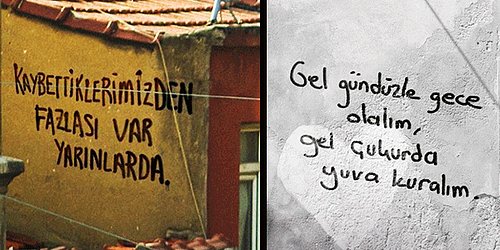 KAYBETTİKLERİMİZDEN
FAZLASI VAR
YARINLARDA.
Gel gündüzle gece
olalım,
gel Çukurda
yuva kuralım.